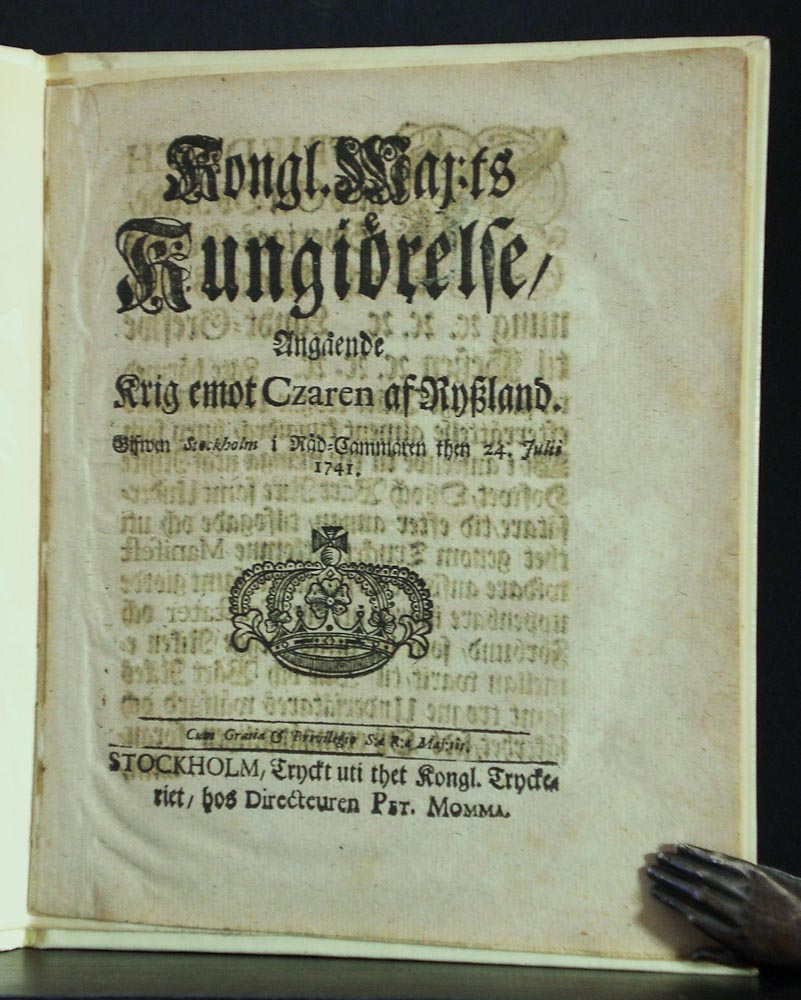 Kongl. Maj:ts
Kungiörelse/
Angående
Krig emot Czaren af Ryßland.
Gifwen Stockholm i Råd-Cammaren then 24. Julii
1741.
Cum Gratia & Privilegio S:æ R:æ Maj:tis.
STOCKHOLM, Tryckt uti thet Kongl. Trycke-
riet/ hos Directeuren PET. MOMMA.